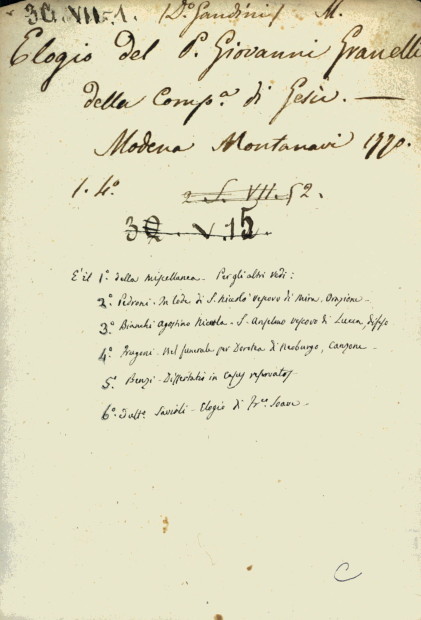 3G.VII.1. (Do. Gandini) M.
Elogio del P. Giovanni Granelli
della Comp.a di Gesù. —
Modena Montanari 1770.
1. 4o
2. S. VII. 52.
3Q. V.15.
E' il 1o della miscellanea - Per gli altri vedi:
2o Pedroni - In lode di S. Nicolò vescovo di Mira, Orazione -
3o Bianchi Agostino Niccola - S. Anselmo vescovo di Lucca, difeso
4o Frugoni - Nel funerale per Dorotea di Neoburgo, Canzone -
5o Benzi - Dissertatio in Casus reservatos
6o Savioli - Elogio di Fr.co Soave -
C